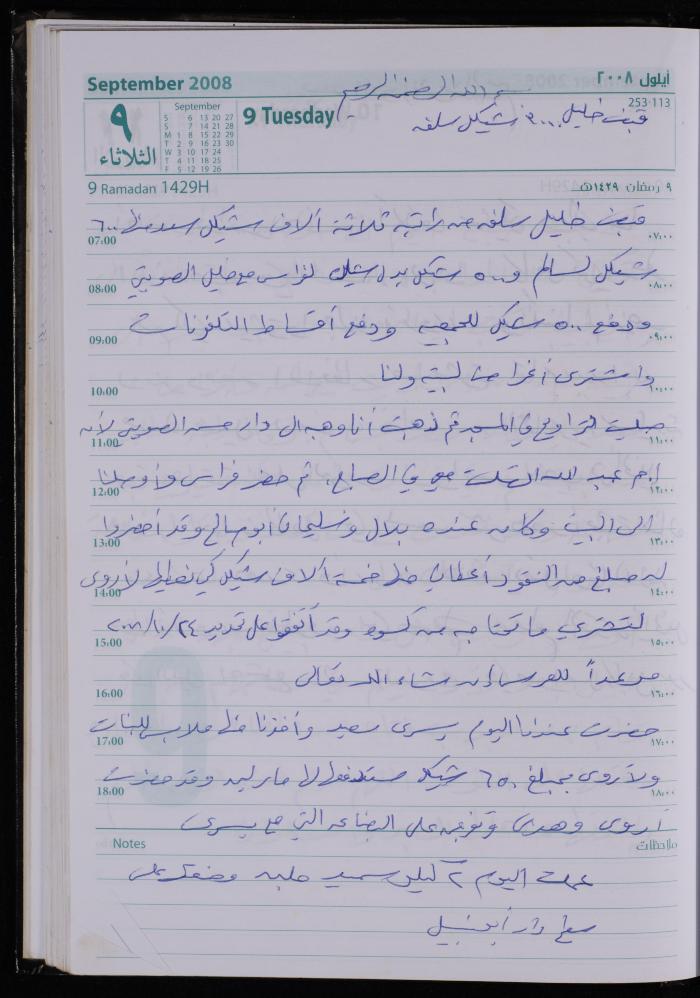 September 2008
أيلول ٢٠٠٨
بسم الله الرحمن الرحيم
253-113
٩
الثلاثاء
September
S 6 13 20 27
S 7 14 21 28
M 1 8 15 22 29
T 2 9 16 23 30
W 3 10 17 24
T 4 11 18 25
F 5 12 19 26
9 Tuesday
قبض خليل ٣٠٠٠ شيكل سلفه
9 Ramadan 1429H
٩ رمضان ١٤٢٩هـ
قبض خليل سلفه من راتبه ثلاثة آلاف شيكل ٦٠٠
07:00 ٠٧:٠٠
شيكل لسالم و ٥٠٠ شيكل بدل لفراس مع خليل الصويتي
08:00 ٠٨:٠٠
ودفع ٥٠٠ شيكل للجمعيه ودفع أقساط التلفونات
09:00 ٠٩:٠٠
واشترى أغراض لبيته ولنا
10:00 ١٠:٠٠
صليت التراويح في المسجد ثم ذهبت أنا وهبه الى دار حسن الصويتي لأن
11:00 ١١:٠٠
ام عبد الله معي في الصباح، ثم حضر فراس وأوصلنا
12:00 ١٢:٠٠
الى البيت وكان عنده بلال وسليمان أبو صالح وقد أحضروا
13:00 ١٣:٠٠
له مبلغ من النقود أعطاني منها خمسة آلاف شيكل كي نعطيها لأروى
14:00 ١٤:٠٠
لتشتري ما تحتاجه من كسوه وقد اتفقوا على تحديد ٢٤/١٠/٢٠٠٨
15:00 ١٥:٠٠
موعداً للعرس إن شاء الله تعالى
16:00 ١٦:٠٠
حضرت عندنا اليوم يسرى سعيد وأخذنا منها ملابس للبنات
17:00 ١٧:٠٠
ولأروى بمبلغ ٦٥٠ شيكل وقد حضرت
18:00 ١٨:٠٠
أروى وهدى على البضاعه التي مع يسرى
Notes ملاحظات
عملت اليوم ٢ كيلو سميد حلبه
دار أبو نبيل